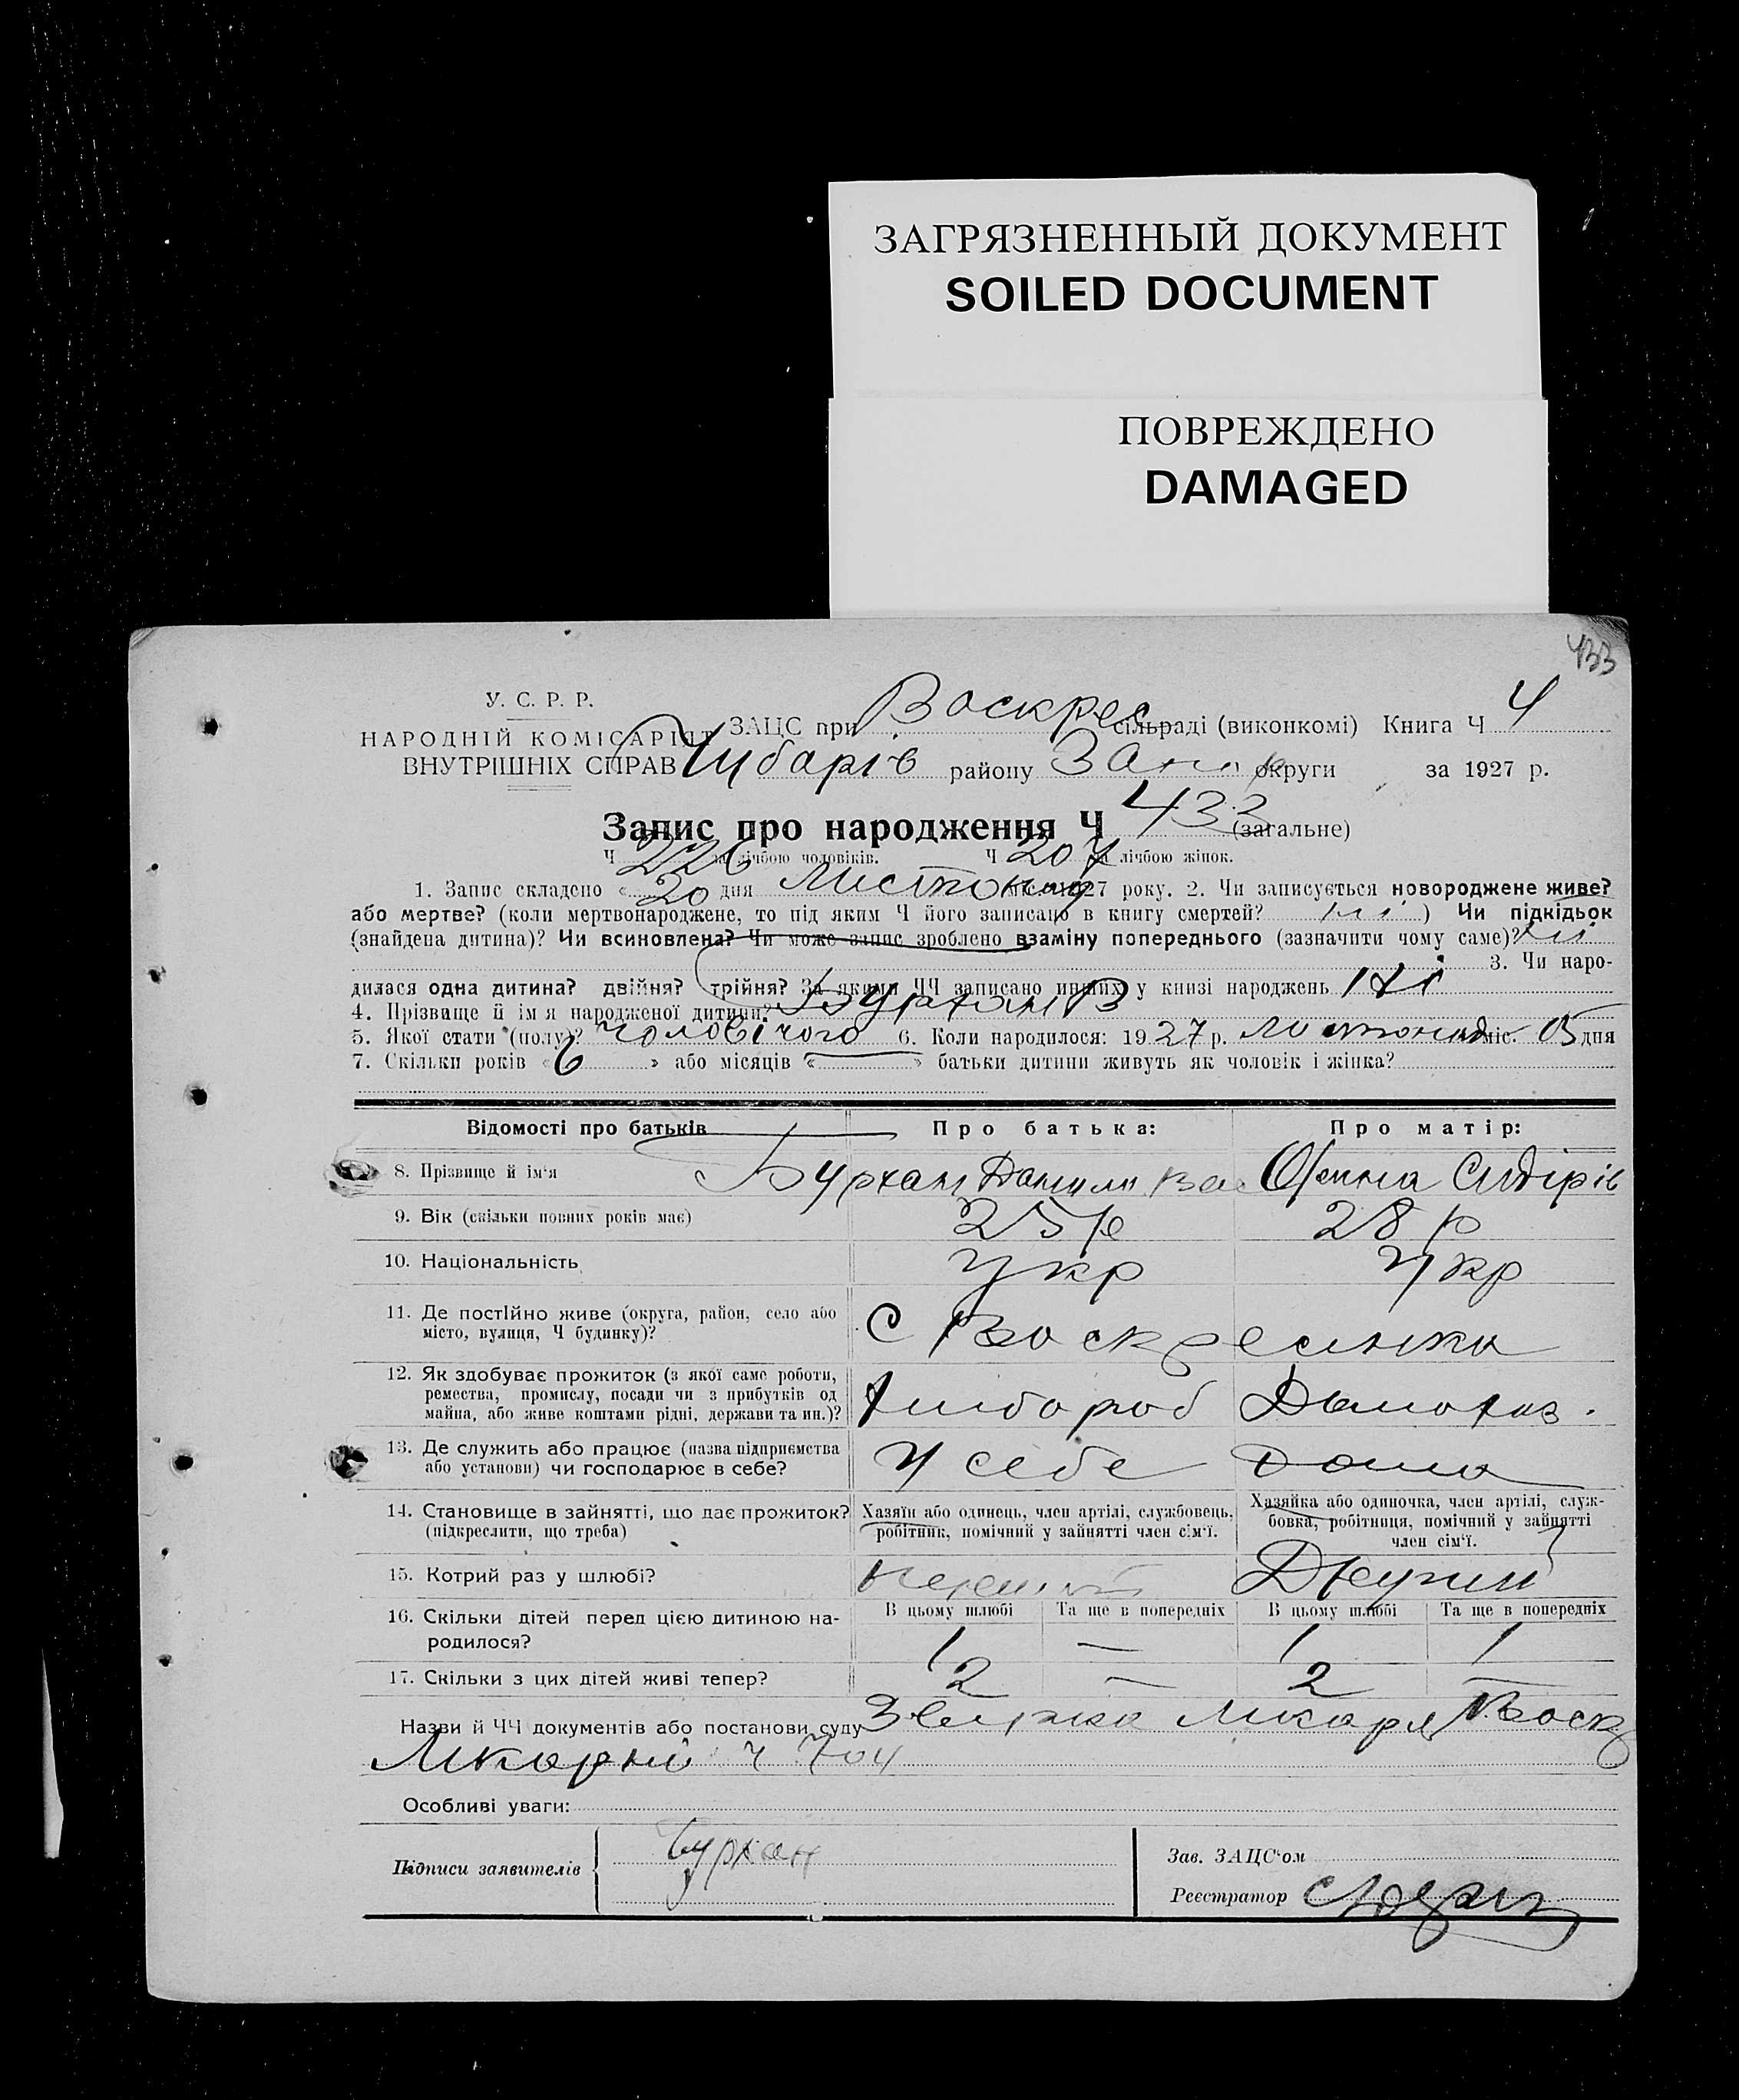 ЗАГРЯЗНЕННЫЙ ДОКУМЕНТ
SOILED DOCUMENT
ПОВРЕЖДЕНО
DAMAGED
433
У. С. Р. Р.
НАРОДНІЙ КОМІСАРІЯТ
ВНУТРІШНІХ СПРАВ
ЗАЦС при Воскрес сільраді (виконкомі) Книга Ч 4
Чубарів району Зап округи за 1927 р.
Запис про народження Ч 433 (загальне)
Ч 226 за лічбою чоловіків. Ч 207 за лічбою жінок.
1. Запис складено « 20 дня Листопад 1927 року. 2. Чи записується новороджене живе?
або мертве? (коли мертвонароджене, то під яким Ч його записано в книгу смертей? ні ) Чи підкідьок
(знайдена дитина)? Чи всиновлена? Чи може запис зроблено взаміну попереднього (зазначити чому саме)? ні
3. Чи наро-
дилася одна дитина? двійня? трійня? За якими ЧЧ записано инших у книзі народжень
4. Прізвище й ім'я народженої дитини? Бурхан В
5. Якої стати (полу)? чоловічого 6. Коли народилося: 1927 р. листопад міс. 15 дня
7. Скільки років « 6 » або місяців « — » батьки дитини живуть як чоловік і жінка?
Відомості про батьків Про батька: Про матір:
8. Прізвище й ім'я Бурхан Данило Сидірів
9. Вік (скільки повних років має) 25 р 28 р
10. Національність Укр Укр
11. Де постійно живе (округа, район, село або
місто, вулиця, Ч будинку)? С Воскресенка
12. Як здобуває прожиток (з якої саме роботи,
ремества, промислу, посади чи з прибутків од
майна, або живе коштами рідні, держави та ин.)? Хлібороб Домохаз.
13. Де служить або працює (назва підприємства
або установи) чи господарює в себе? У себе Дома
14. Становище в зайнятті, що дає прожиток?
(підкреслити, що треба)
Хазяїн або одинець, член артілі, службовець,
робітник, помічний у зайнятті член сім'ї.
Хазяйка або одиночка, член артілі, служ-
бовка, робітниця, помічний у зайнятті
член сім'ї.
15. Котрий раз у шлюбі? перший Другий
16. Скільки дітей перед цією дитиною на-
родилося?
В цьому шлюбі Та ще в попередніх В цьому шлюбі Та ще в попередніх
1 — 1 1
17. Скільки з цих дітей живі тепер? 2 — 2 —
Назви й ЧЧ документів або постанови суду Воскр
Ч 704
Особливі уваги:
Підписи заявителів Бурхан
Зав. ЗАЦС'ом
Реєстратор